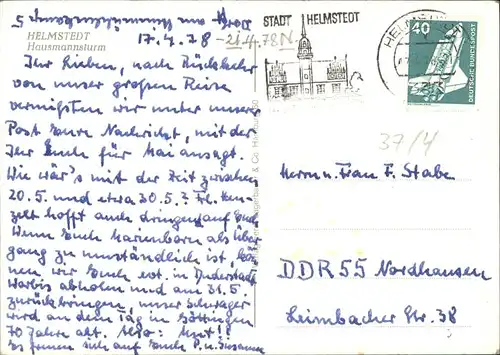 Dorf am Hummelsteckenweg 5
17.4.78 - 21.4.78 N.
HELMSTEDT
Hausmannsturm
Ihr Lieben, nach Rückkehr
von unser großen Reise
vermißten wir unter unserer
Post Eure Nachricht, mit der
Ihr Euch für Mai ansagt.
Wie wär's mit der Zeit zwischen
20.5. und etwa 30.5.? Frl. Hen-
zelt hofft auch dringend auf Euch
Wenn Euch Marienborn als Über
gang zu umständlich ist, kön
nen wir Euch evt. in Duderstadt
Worbis abholen und am 31.5.
zurückbringen, unser Schwager
wird an dem Tag in Göttingen
70 Jahre alt. Also: Mut!!
Es freuen sich auf Euch P. u. Susanne
STADT HELMSTEDT
HELMSTEDT
40
DEUTSCHE BUNDESPOST
37/4
Herrn u. Frau F. Stabe
DDR 55 Nordhausen
Leimbacher Str. 38